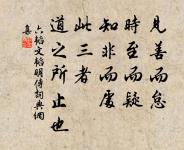 見善而怠
時至而疑
知非而處
此三者
道之所止也
六韜文韜明傳詞典網